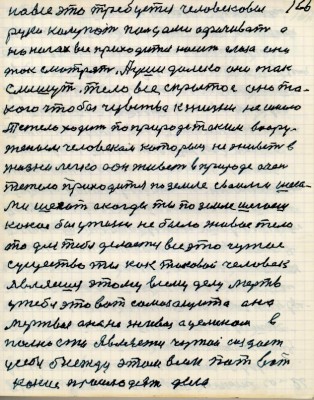 на все это требуется человекови 166
руки
на ногах все приходится носит глаза они
так смотрят. Душа далеко они так
слышут. тело все скрытое оно та-
кого чтобы чувства к жизни не имело
Тяжело ходит по природе таким воору-
женым человекам которыи не живет в
жизни легко а он живет в природе очен
тяжело приходится по земле своими шага-
ми а когда ты по земле
какое бы у жизни не было живое тело
это для тибя делается все это чужое
существо ты как таковой человек
являешся этому всему делу мертв
у тебя это вот самозащита она
мертвая она не живая а целиком в
полности является чужой создает
у себя между этим всем вот вот
какие происходят дела